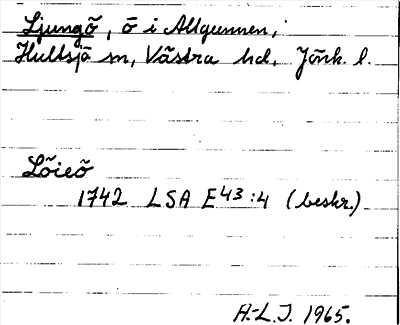 Ljungö, ö i Allgunnen,
Hultsjö sn, Västra hd, Jönk. l.
Löieö
1742 LSA E43:4 (beskr.)
A.-L.J. 1965.